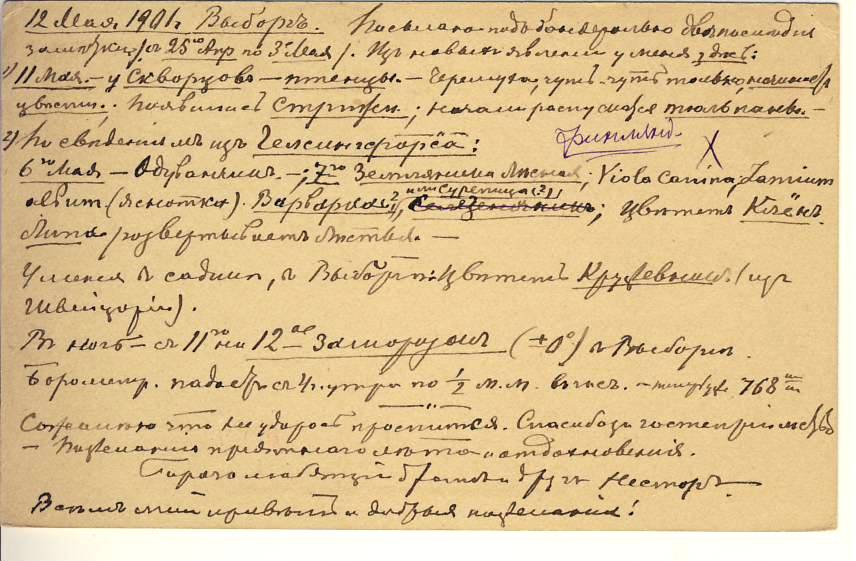 12 Мая 1901 г. Выборгъ. Послано подъ бандеролью два послѣднія
записки /съ 25го Апр по 3 Мая/. Изъ новыхъ явленій у меня здѣсь:
1) 11 Мая – у Скворцовъ – птенцы. – Черемуха, чуть-чуть только, начинаетъ
цвѣсти; Появились Стрижи; начали распускаться тюльпаны. –
2) По свѣдѣніямъ изъ Гельсингфорса: Финлянд.
6го Мая – Одуванчикъ –; 7го Земляника лѣсная; Viola canina, Lamium
album (яснотка). Варварка или сурепица (?); цвѣтетъ Клёнъ
Липа развертываетъ листья. –
У меня въ садикѣ, въ Выборгѣ цвѣтетъ Крыжевникъ (изъ
Швейцаріи).
Въ ночь – съ 11го на 12ое Заморозокъ (±0°) въ Выборгѣ.
Барометр. падаетъ съ 4 ч. утра по ½ м.м. въ час. – 768
Сожалѣю что не удалось проститься. Спасибо за гостепріимство
– Пожеланія пріятнаго лѣта и отдохновенія.
Горячо любящій братъ и другъ Несторъ
Всѣмъ мой привѣтъ и добрыя пожеланія!